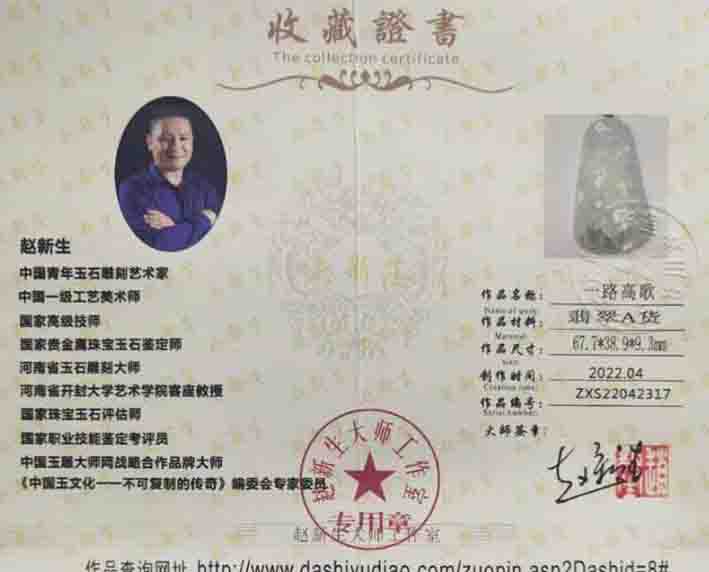 收藏證書
The collection certificate
赵新生
中国青年玉石雕刻艺术家
中国一级工艺美术师
国家高级技师
国家贵金属珠宝玉石鉴定师
河南省玉石雕刻大师
河南省开封大学艺术学院客座教授
国家珠宝玉石评估师
国家职业技能鉴定考评员
中国玉雕大师网战略合作品牌大师
《中国玉文化——不可复制的传奇》编委会专家委员
作品名称： 一路高歌
Name of work:
作品材料： 翡翠A货
Material:
作品尺寸： 67.7*38.9*9.3mm
Size:
创作时间： 2022.04
Creation time:
作品编号： ZXS22042317
Serial number:
大师签章：
赵新生大师工作室
专用章
赵新生大师工作室
作品查询网址 http://www.dashiyudiao.com/zuopin.asp?Dashid=8#